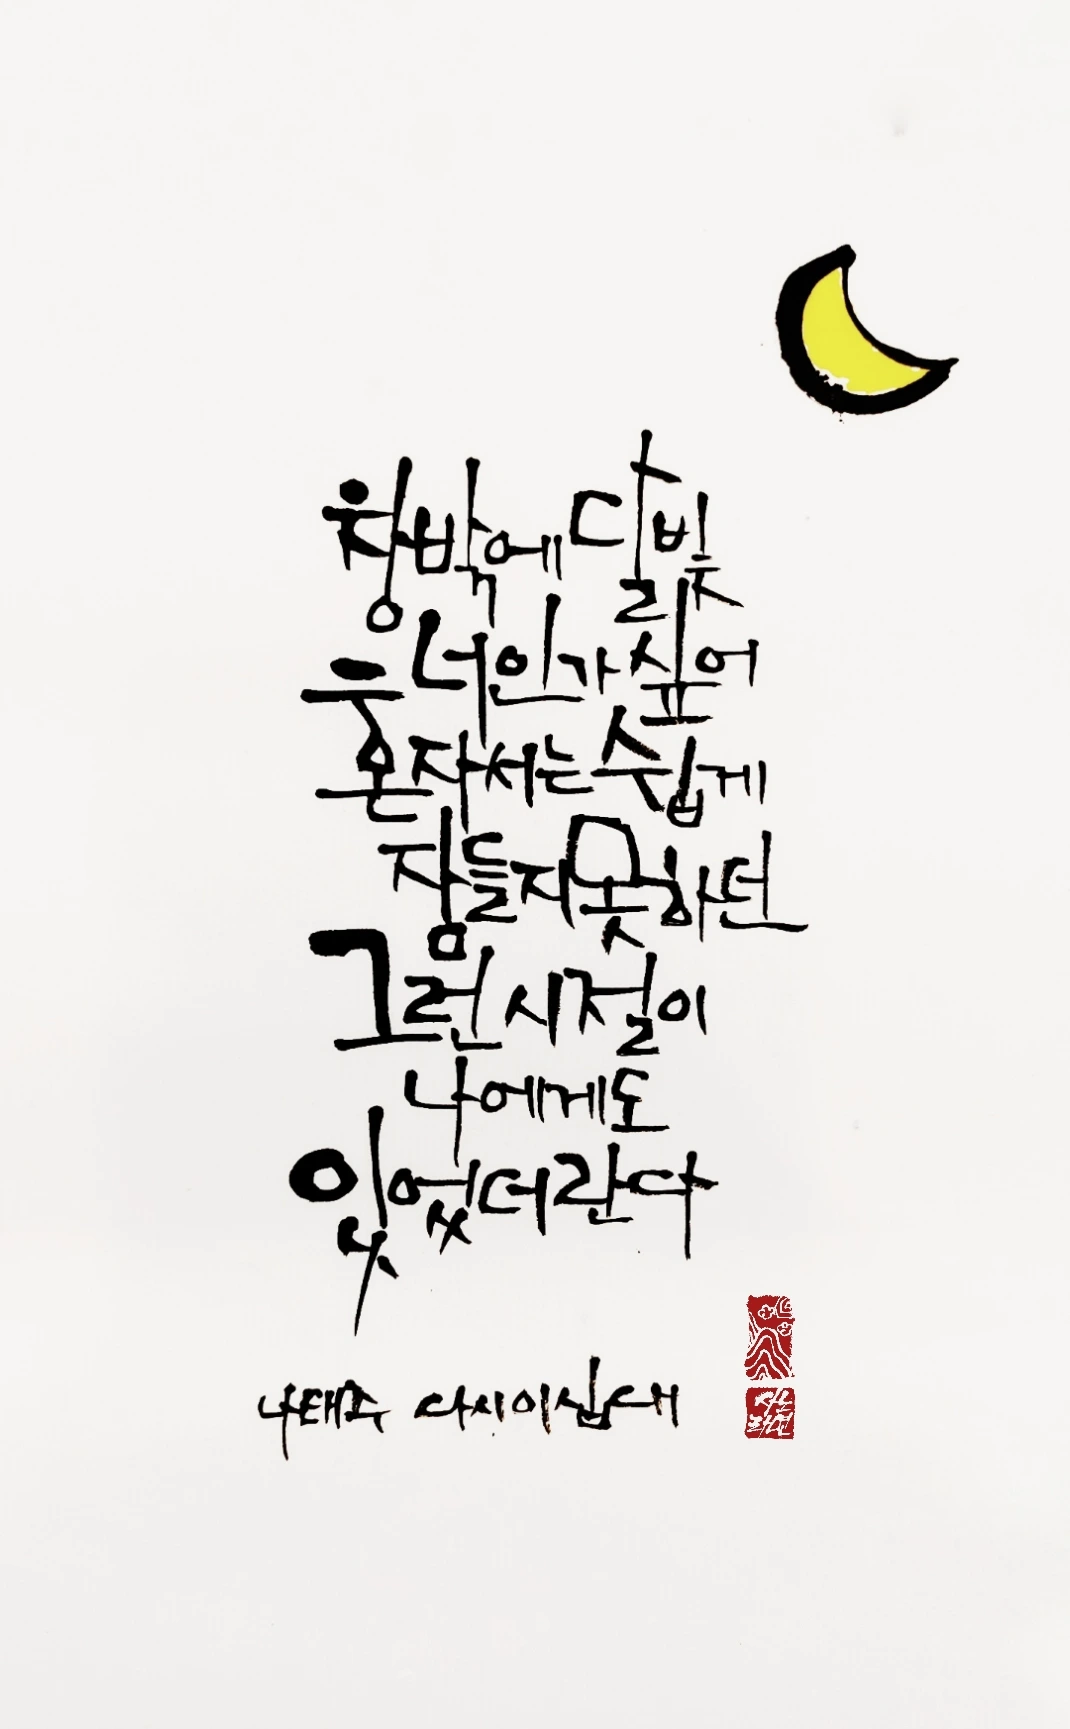 창밖에 달빛
너인가 싶어
혼자서는 쉽게
잠들지 못하던
그런 시절이
나에게도
있었더란다
나태주 다시 이십대